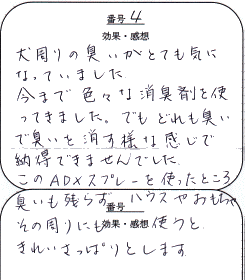 番号 4
効果・感想
犬周りの臭いがとても気に
なっていました
今まで色々な消臭剤を使
ってきました。でもどれも臭い
で臭いを消す様な感じで
納得できませんでした。
このADXスプレーを使ったところ
臭いも残らず、ハウスやおもちゃ
番号
その周りにも使うと
効果・感想
きれいさっぱりとします